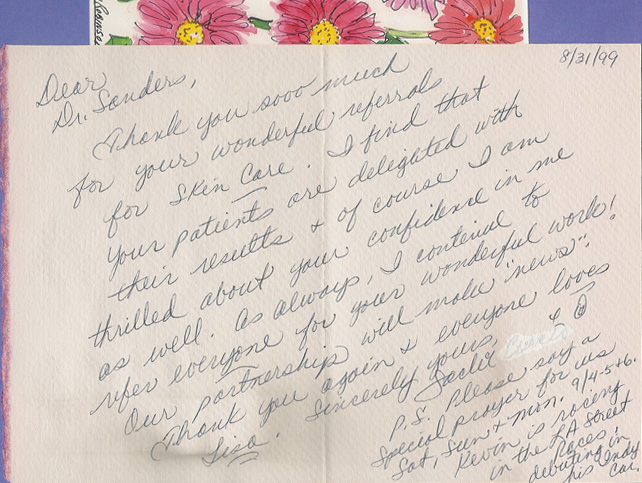 Robinson
8/31/99
Dear
Dr. Sanders,
Thank you sooo much
for your wonderful referrals
for Skin Care. I find that
your patients are delegated with
their results & of course I am
thrilled about your confidence in me
as well. As always, I contenue to
refer everyone for your wonderful work!
Our partnership will make "news".
Thank you again & everyone loves
Lisa. Sincerely yours,
Jackie
P.S. Please say a
special prayer for us
Sat, Sun & Mon. 9/4-5+6.
Kevin is racing
in the LA Street
Races!
debuting in
his Indy
Car.